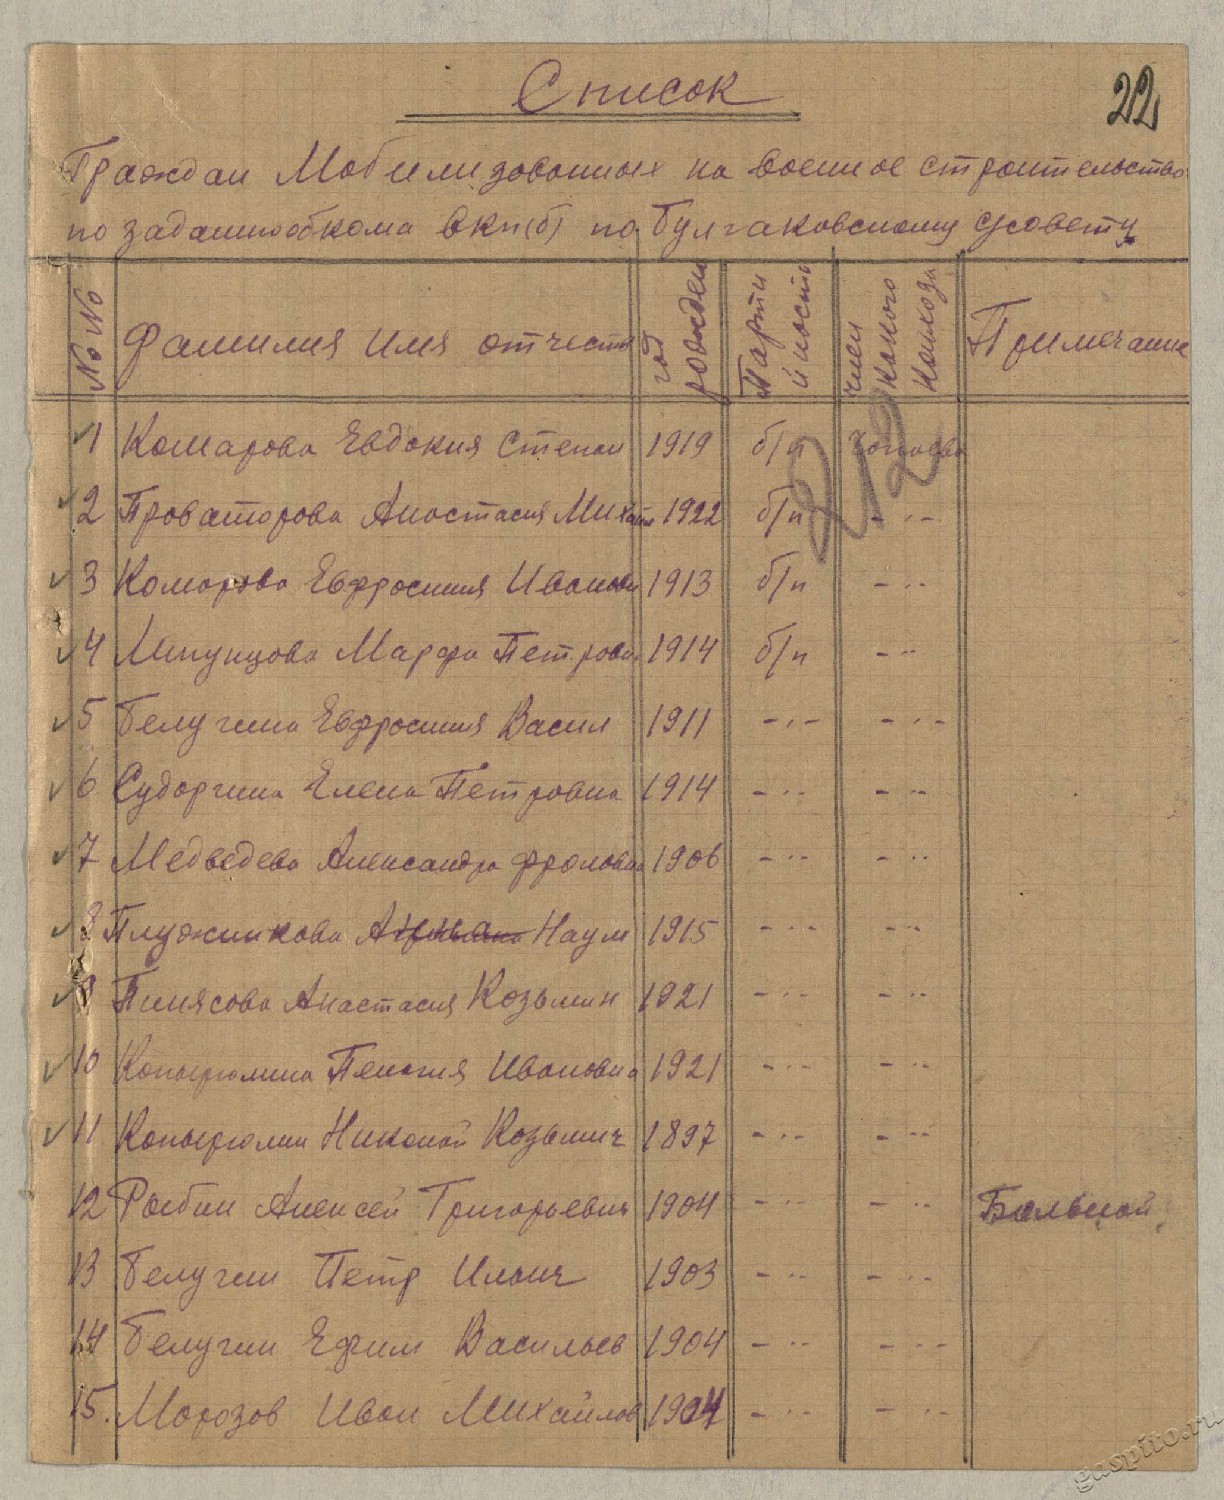 Список
22
Граждан Мобилизованных на военное строительство
по заданию обкома вкп(б) по Булгаковскому с/совету
№№ Фамилия имя отчеств год рожден Партийность член какого колхоза Примечание
212
1 Комарова Евдокия Степан 1919 б/п
2 Проваторова Анастасия Михайл 1922 б/п -··-
3 Комарова Евфросиния Иванови 1913 б/п -··
4 Липунцова Марфа Петровн 1914 б/п -··
5 Белугина Евфросиния Васил 1911 -··- -··-
6 Сударгина Елена Петровна 1914 -·· -··
7 Медведева Александра Фроловна 1906 -·· -··
8 Плужникова Наум 1915 -··- -··
9 Пинясова Анастасия Козьмин 1921 -··- -··
10 Копырюлина Пелагия Ивановна 1921 -··- -··
11 Копырюлин Николай Козьмич 1897 -·· -··
12 Рыбин Алексей Григорьевич 1904 -·· -·· Больной
13 Белугин Петр Ильич 1903 -·· -··
14 Белугин Ефим Васильев 1904 -·· -··-
15. Морозов Иван Михайлов 1904 -·· -··-
gaspito.ru